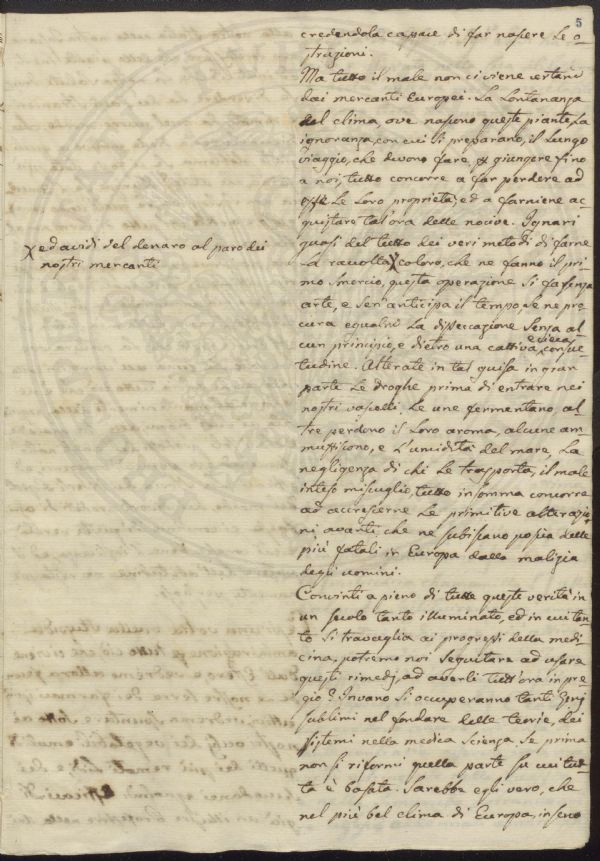 5
credendola capace di far nascere le o-
struzioni.
Ma tutto il male non ci viene
dai mercanti Europei. La Lontananza
del clima, ove nascono queste piante, La
ignoranza, con cui si preparano, il Lungo
viaggio, che devono fare, giungere fino
a noi, tutto concorre a far perdere ad
esse Le Loro proprietà, ed a farniene ac-
quistare tal'ora delle nocive. Ignari
quasi del tutto dei veri metodi di farne
La raccolta X coloro, che ne fanno il pri-
X ed avidi del denaro al paro dei
nostri mercanti
mo smercio, questa operazione si fa senza
arte, e sen'anticipa il tempo, se ne pro-
cura egualm. La disseccazione senza al-
cun principio, e dietro una cattiva, e cieca consue-
tudine. Alterate in tal guisa in gran
parte Le droghe prima di entrare nei
nostri vascelli, Le une fermentano, al-
tre perdono il Loro aroma, alcune am-
muffiscono, e L'umidità del mare, La
negligenza di chi Le trasporta, il male
inteso miscuglio, tutto insomma concorre
ad accrescerne Le primitive alterazio-
ni avanti, che ne subiscano poscia delle
più fatali in Europa dalla malizia
degli uomini.
Convinti a pieno di tutte queste verità in
un secolo tanto illuminato, ed in cui tan-
to si travaglia ai progressi della medi-
cina, potremo noi seguitare ad usare
questi rimedj, ad averli tutt'ora in pre-
gio? Invano si occuperanno tanti Genj
sublimi nel fondare delle teorie, dei
sistemi nella medica scienza, se prima
non si riformi quella parte su cui tut-
ta è basata. Sarebbe egli vero, che
nel più bel clima di Europa, in seno